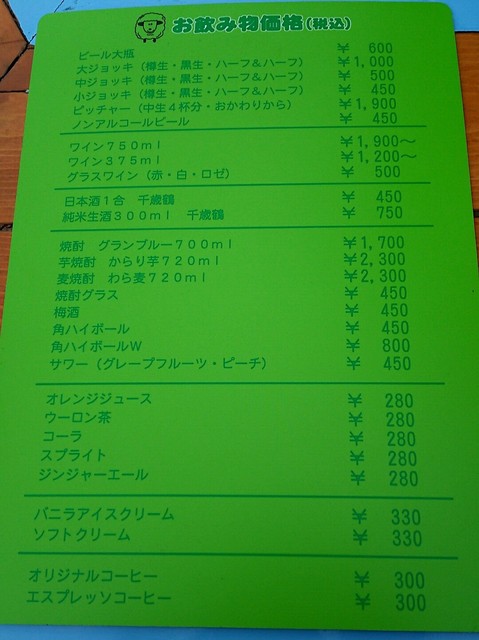 お飲み物価格(税込)
ビール大瓶 ¥ 600
大ジョッキ（樽生・黒生・ハーフ＆ハーフ） ¥1,000
中ジョッキ（樽生・黒生・ハーフ＆ハーフ） ¥ 500
小ジョッキ（樽生・黒生・ハーフ＆ハーフ） ¥ 450
ピッチャー（中生４杯分・おかわりから） ¥1,900
ノンアルコールビール ¥ 450
ワイン７５０ｍｌ ¥1,900～
ワイン３７５ｍｌ ¥1,200～
グラスワイン（赤・白・ロゼ） ¥ 500
日本酒１合　千歳鶴 ¥ 450
純米生酒３００ｍｌ　千歳鶴 ¥ 750
焼酎　グランブルー７００ｍｌ ¥1,700
芋焼酎　からり芋７２０ｍｌ ¥2,300
麦焼酎　わら麦７２０ｍｌ ¥2,300
焼酎グラス ¥ 450
梅酒 ¥ 450
角ハイボール ¥ 450
角ハイボールＷ ¥ 800
サワー（グレープフルーツ・ピーチ） ¥ 450
オレンジジュース ¥ 280
ウーロン茶 ¥ 280
コーラ ¥ 280
スプライト ¥ 280
ジンジャーエール ¥ 280
バニラアイスクリーム ¥ 330
ソフトクリーム ¥ 330
オリジナルコーヒー ¥ 300
エスプレッソコーヒー ¥ 300